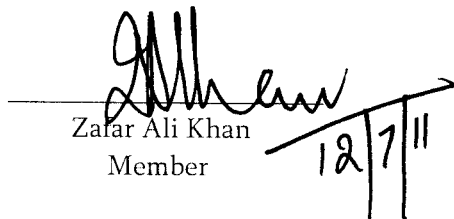 Zafar Ali Khan
Member
12/7/11